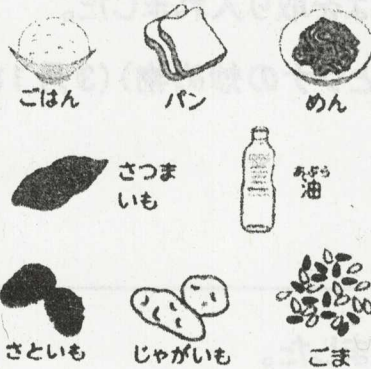 ごはん
パン
めん
さつま
いも
あぶら
油
さといも
じゃがいも
ごま